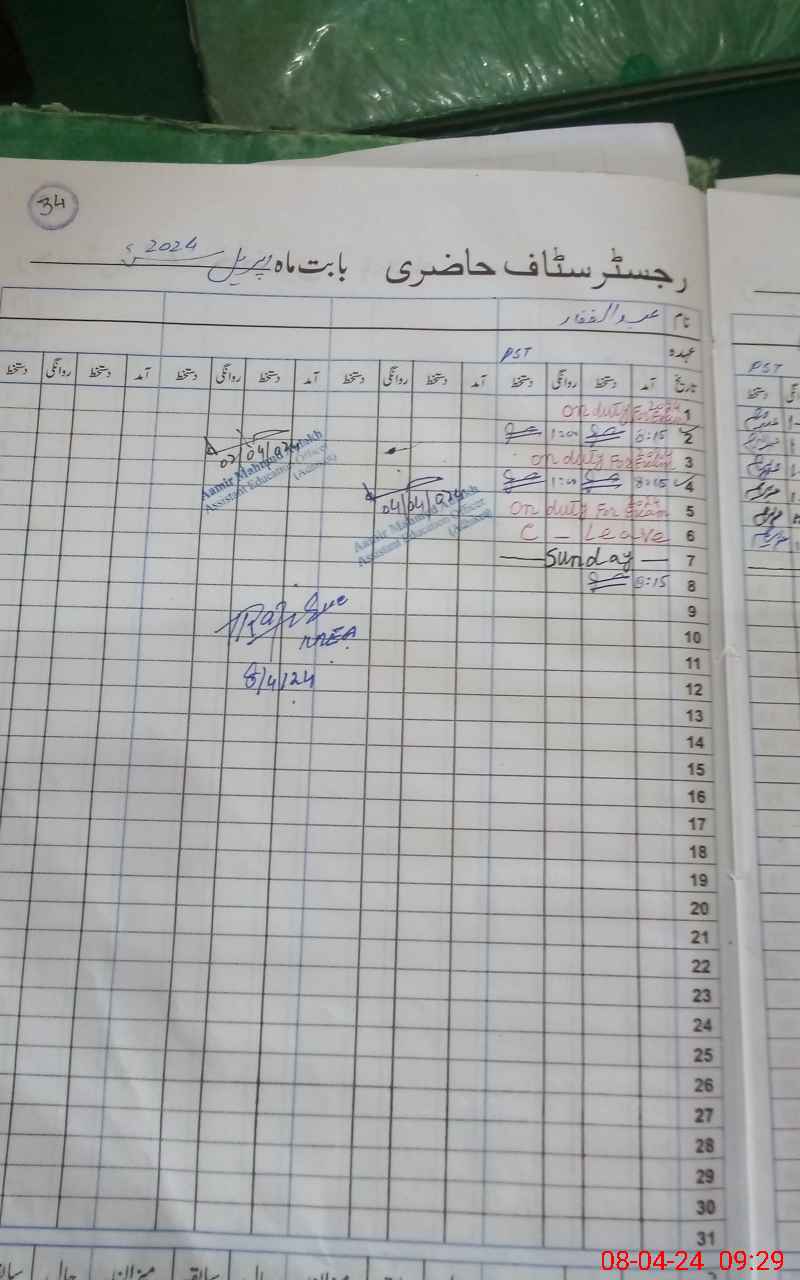 34
رجسٹر سٹاف حاضری بابت ماہ اپریل 2024ء
نام عبدالغفار
عہدہ PST
PST
تاریخ آمد دستخط روانگی دستخط آمد دستخط روانگی دستخط آمد دستخط روانگی دستخط آمد دستخط روانگی دستخط
دستخط
1 on duty For Exam 2024
2 8:15 1:00
3 on duty For Exam
4 8:15 1:00
5 on duty For Exam 2024
6 C - Leave
7 — Sunday —
8 8:15
9
10
11
12
13
14
15
16
17
18
19
20
21
22
23
24
25
26
27
28
29
30
31
02/04/024
Aamir Mahmood
Assistant Education Officer
04/04/024
Aamir Mahmood
Assistant Education Officer
MEA
8/4/24
میزان حال سابقہ
08-04-24 09:29